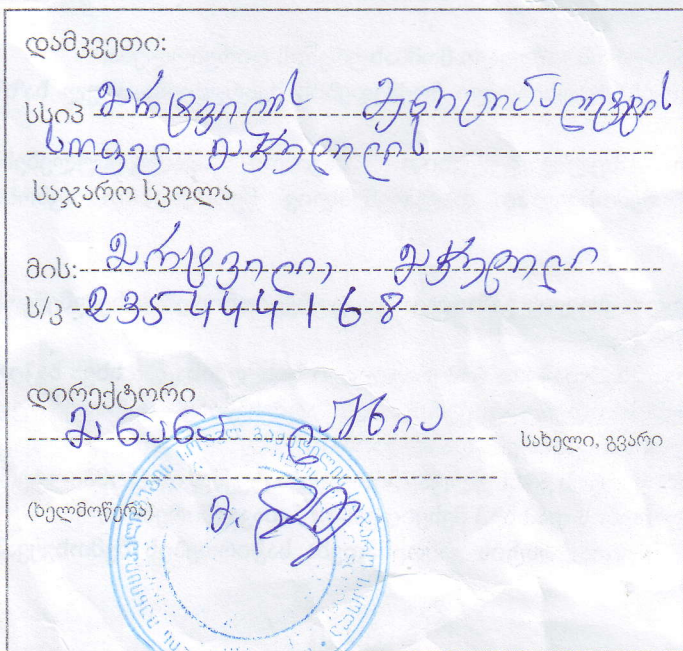 დამკვეთი:
სსიპ მარტვილის მუნიციპალიტეტის
სოფელ გაჭედილის
საჯარო სკოლა
მის: მარტვილი, გაჭედილი
ს/კ 235444168
დირექტორი
მანანა
სახელი, გვარი
(ხელმოწერა)